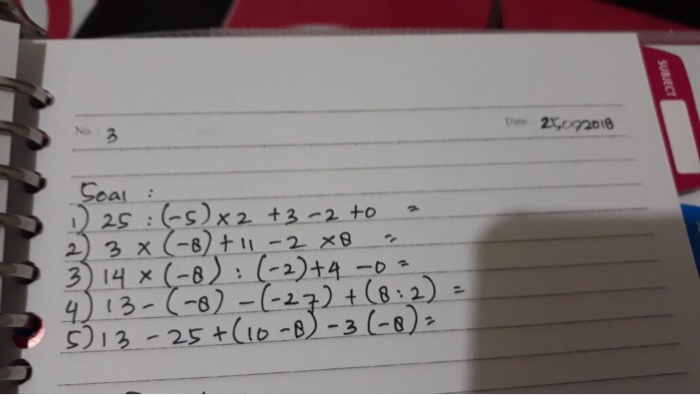 SUBJECT
No. : 3
Date. : 25072018
Soal :
1) 25 : (-5) x 2 + 3 - 2 + 0 =
2) 3 x (-8) + 11 - 2 x 8 =
3) 14 x (-8) : (-2) + 4 - 0 =
4) 13 - (-8) - (-27) + (8 : 2) =
5) 13 - 25 + (10 - 8) - 3 (-8) =